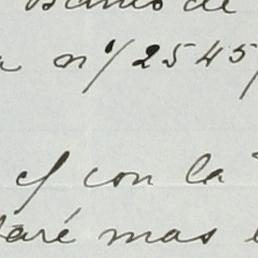 Banco de
a nº/2545/
c/ con la
taré mas